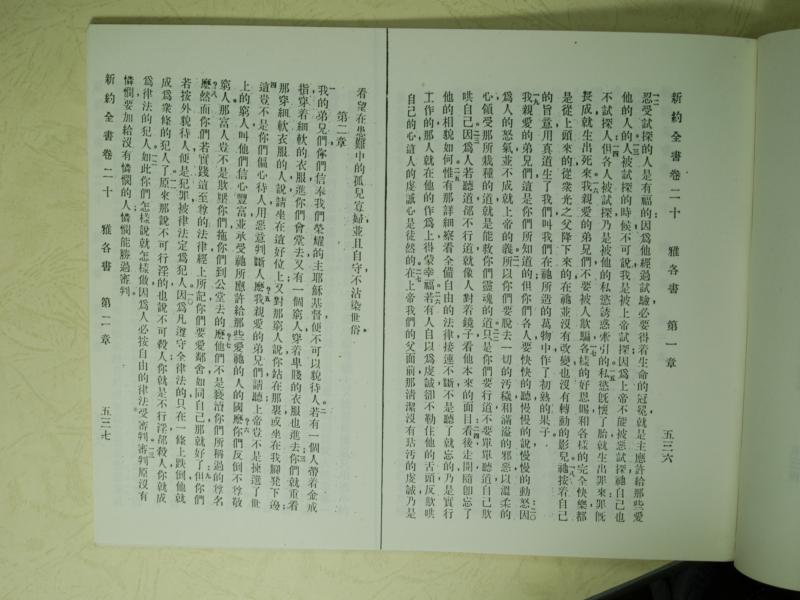 新約全書卷二十　雅各書　第一章　五三六
忍受試探的人是有福的因爲他經過試驗必要得着生命的冠冕就是主應許給那些愛
他的人的人被試探的時候不可說我是被上帝試探因爲上帝不能被惡試探祂自己也
不試探人但各人被試探乃是被他的私慾誘惑牽引的私慾旣懷了胎就生出罪來罪旣
長成就生出死來我親愛的弟兄們不要被人欺騙各樣的好恩賜和各樣的完全快樂都
是從上頭來的從衆光之父降下來的在祂並沒有改變也沒有轉動的影兒祂按着自己
的旨意用真道生了我們叫我們在祂所造的萬物中作了初熟的果子
我親愛的弟兄們這是你們所知道的但你們各人要快快的聽慢慢的說慢慢的動怒因
爲人的怒氣並不成就上帝的義所以你們要脫去一切的汚穢和滿溢的邪惡以溫柔的
心領受那所栽種的道就是能救你們靈魂的道只是你們要行道不要單單聽道自己欺
哄自己因爲人若聽道卻不行道就像人對着鏡子看他本來的面目看後走開隨卽忘了
他的相貌如何惟有那詳細察看全備自由的法律接連不斷不是聽了就忘的乃是實行
工作的那人就在他的作爲上得蒙幸福若有人自以爲虔誠卻不勒住他的舌頭反欺哄
自己的心這人的虔誠心是徒然的在上帝我們的父面前那清潔沒有玷汚的虔誠乃是
看望在患難中的孤兒寡婦並且自守不沾染世俗
第二章
我的弟兄們你們信奉我們榮耀的主耶穌基督便不可以貌待人若有一個人帶着金戒
指穿着細軟的衣服進你們會堂去又有一個窮人穿着卑賤的衣服也進去你們就重看
那穿細軟衣服的人說請坐在這好位上又對那窮人說你站在那裏或坐在我腳凳下邊
這豈不是你們偏心待人用惡意判斷人麽我親愛的弟兄們請聽上帝豈不是揀選了世
上的窮人叫他們信心豐富並承受祂所應許給那些愛祂的人的國麽你們反倒不尊敬
窮人那富人豈不是欺壓你們拖你們到公堂去的麽他們不是褻瀆你們所稱過的尊名
麽然而你們若實踐這至尊的法律經上所記你們要愛鄰舍如同自己那就好了但你們
若按外貌待人便是犯罪被律法定爲犯人因爲凡遵守全律法的只在一條上跌倒他就
成爲衆條的犯人了原來那說不可行淫的也說不可殺人你就是不行淫卻殺人你就成
爲律法的犯人如此你們怎樣說就怎樣做因爲人必按自由的律法受審判審判原沒有
憐憫要加給沒有憐憫的人憐憫能勝過審判
新約全書卷二十　雅各書　第二章　五三七